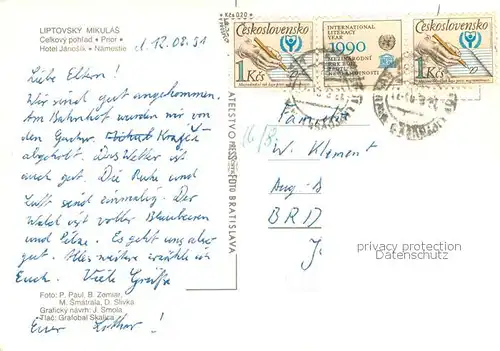 LIPTOVSKÝ MIKULÁŠ
Celkový pohľad • Prior •
Hotel Jánošík • Námestie
, 12.08.91
Liebe Eltern!
Wir sind gut angekommen.
Am Bahnhof wurden wir von
den Gastvr.
abgeholt. Das Wetter ist
auch gut. Die Ruhe und
Luft sind einmalig. Der
Wald ist voller Blaubeeren
und Pilze. Es geht uns also
gut. Alles weitere erzähle ich
Euch. Viele Grüße
Foto: P. Paul, B. Zemiar,
M. Šmátrala, D. Slivka
Grafický návrh: J. Smola
Tlač: Grafobal Skalica
Euer Lothar!
ATEĽSTVO PRESSFOTO BRATISLAVA
Kčs 0,20
16/8.
Československo
1 Kčs
INTERNATIONAL
LITERACY
YEAR
1990
Československo
1 Kčs
Familie
W. Klement
Aug-B
BRD
privacy protection
Datenschutz